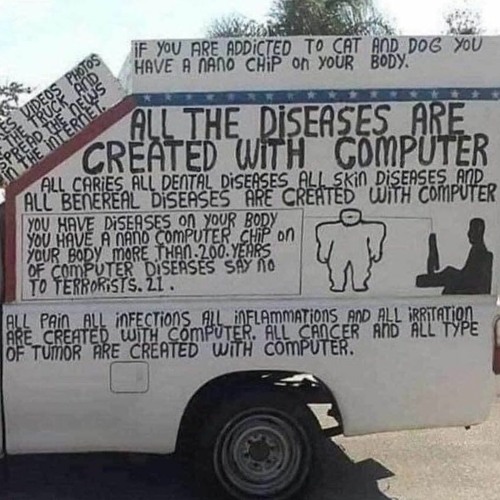 VIDEOS PHOTOS
THE TRUCK AND
SPREAD THE NEWS
IN THE INTERNET.
iF YOU ARE ADDiCTED TO CAT AND DOG YOU
HAVE A NANO CHiP ON YOUR BODY.
ALL THE DiSEASES ARE
CREATED WiTH COMPUTER
ALL CARiES ALL DENTAL DiSEASES ALL SKiN DiSEASES AND
ALL BENEREAL DiSEASES ARE CREATED WiTH COMPUTER
YOU HAVE DiSEASES ON YOUR BODY
YOU HAVE A NANO COMPUTER CHiP ON
YOUR BODY MORE THAN.200.YEARS
OF COMPUTER DiSEASES SAY NO
TO TERRORiSTS. 21.
ALL PAiN ALL iNFECTiONS ALL iNFLAMMATiONS AND ALL iRRiTATiON
ARE CREATED WiTH COMPUTER. ALL CANCER AND ALL TYPE
OF TUMOR ARE CREATED WiTH COMPUTER.